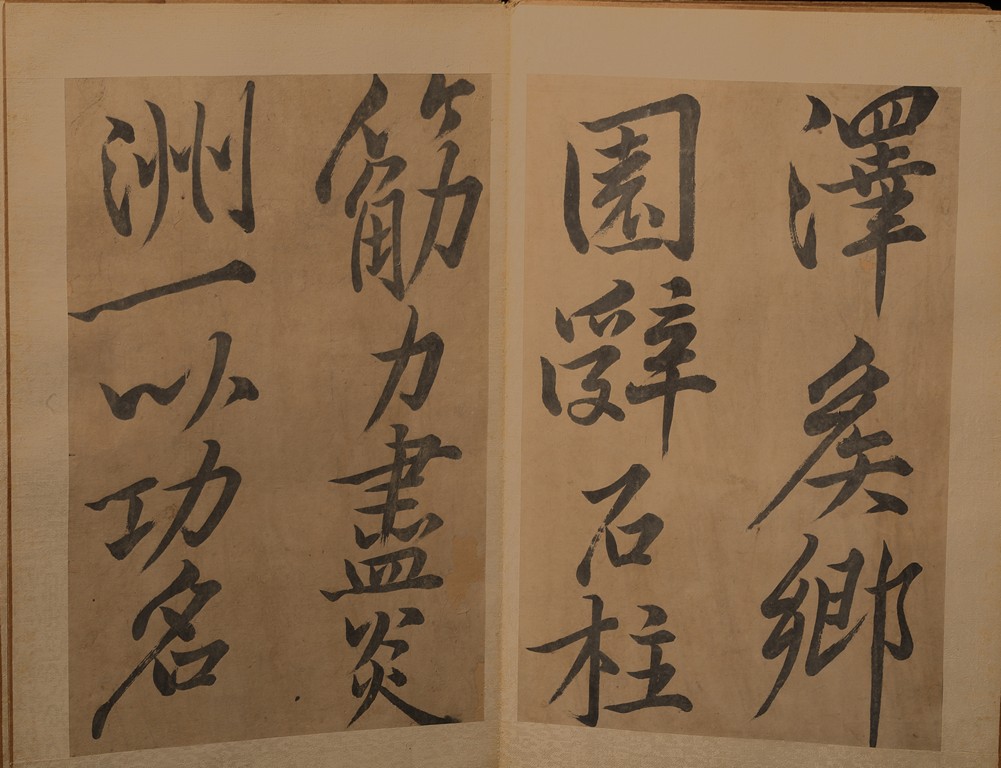 澤矦鄉
園辭石柱
筋力盡炎
洲一以功名